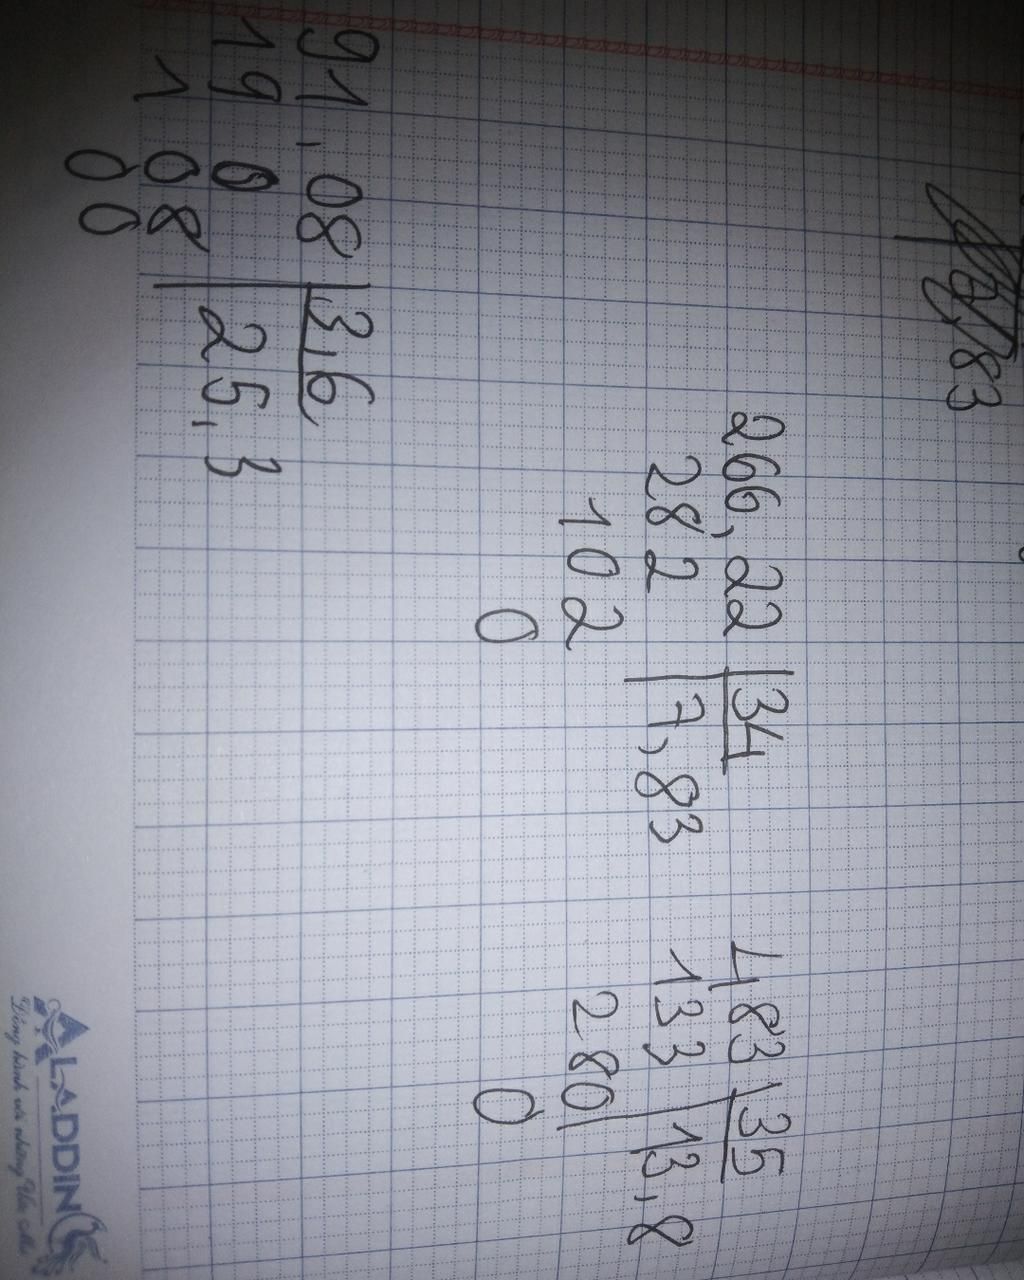 83
266,22 | 34
28 2 | 7,83
102
0
483 | 35
133 | 13,8
280
0
91,08 | 3,6
19 0 | 25,3
1 08
00
ALADDIN